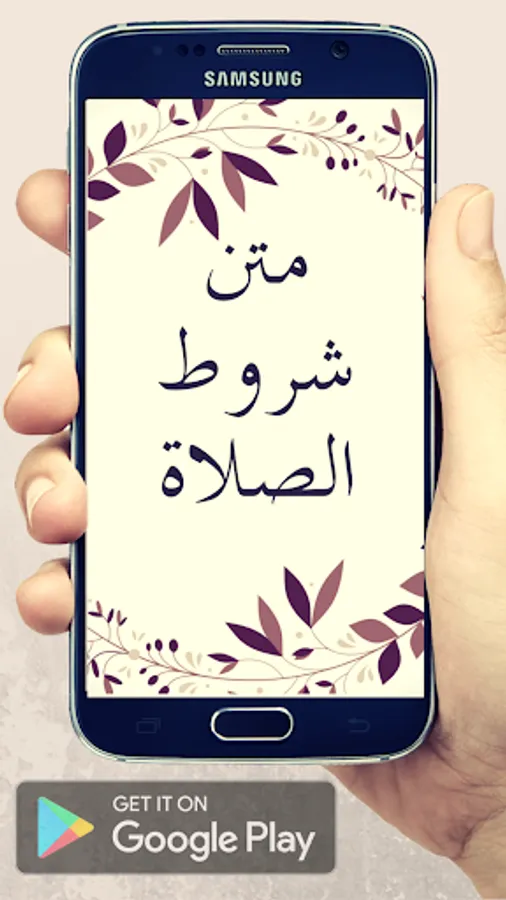 SAMSUNG
متن
شروط
الصلاة
GET IT ON
Google Play